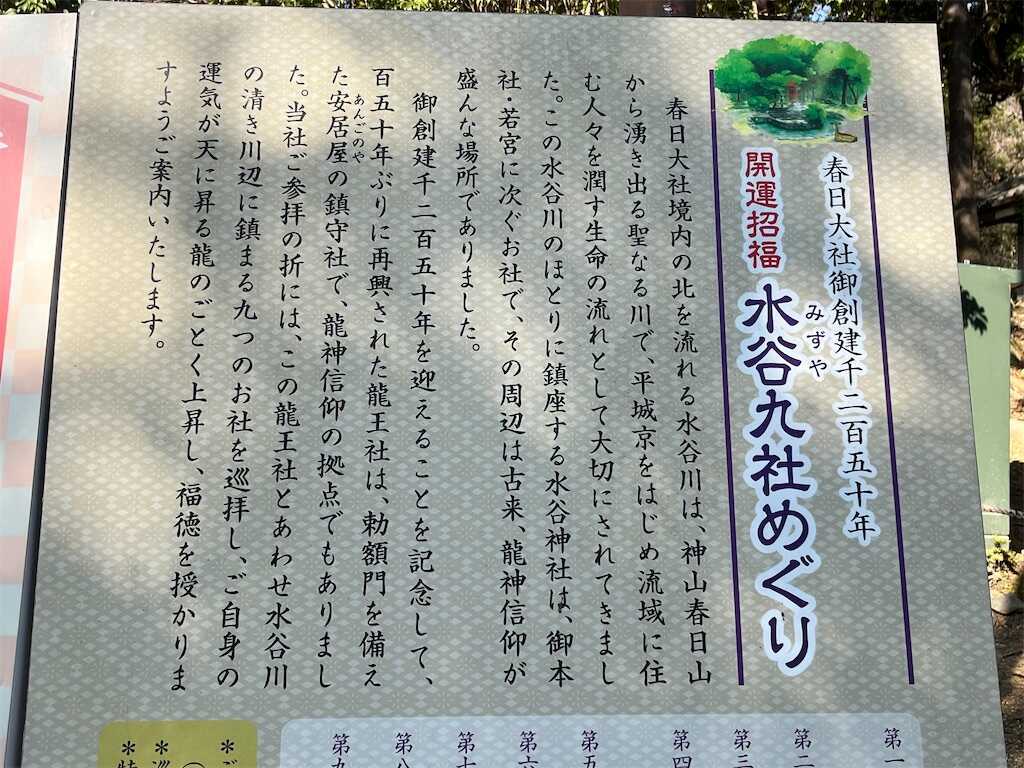 春日大社御創建千二百五十年
開運招福 水谷九社めぐり
みずや
春日大社境内の北を流れる水谷川は、神山春日山
から湧き出る聖なる川で、平城京をはじめ流域に住
む人々を潤す生命の流れとして大切にされてきまし
た。この水谷川のほとりに鎮座する水谷神社は、御本
社・若宮に次ぐお社で、その周辺は古来、龍神信仰が
盛んな場所でありました。
御創建千二百五十年を迎えることを記念して、
百五十年ぶりに再興された龍王社は、勅額門を備え
た安居屋の鎮守社で、龍神信仰の拠点でもありまし
あんごのや
た。当社ご参拝の折には、この龍王社とあわせ水谷川
の清き川辺に鎮まる九つのお社を巡拝し、ご自身の
運気が天に昇る龍のごとく上昇し、福徳を授かりま
すようご案内いたします。
第一
第二
第三
第四
第五
第六
第七
第八
第九
＊ご
＊巡
＊特